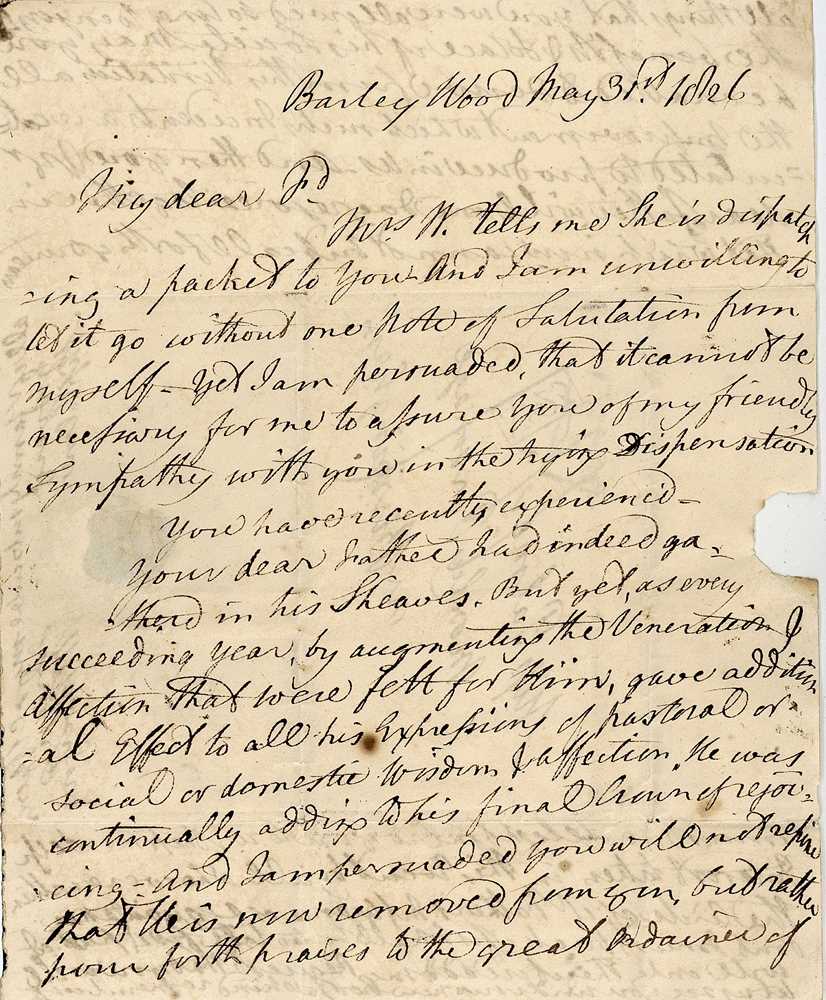 Barley Wood May 31st. 1826
My dear Fd
Mrs W. tells me She is dispatch
-ing a packet to You And I am unwilling to
let it go without one Note of Salutation from
myself - Yet I am persuaded, that it cannot be
necessary for me to assure You of my friendly
Sympathy with you in the trying Dispensation
You have recently experienced -
Your dear Father had indeed ga-
-therd in his Sheaves. But yet, as every
succeeding year, by augmenting the Veneration &
Affection that were felt for Him, gave addition
-al Effect to all his Expressions of pastoral or
social or domestic Wisdom & affection. He was
continually adding to his final Crown of rejoi-
-cing - And I am persuaded you will not repine
that He is now removed from you, but rather
pour forth praises to the great Ordainer of